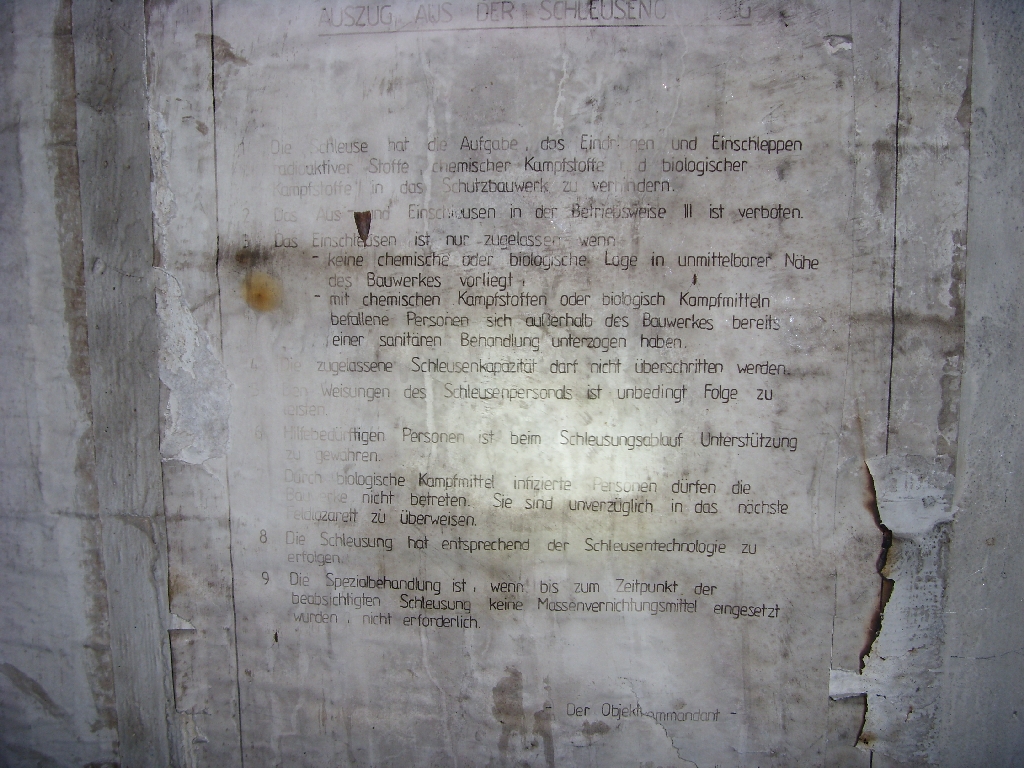 AUSZUG AUS DER
1 Die Schleuse hat die Aufgabe, das Eindringen und Einschleppen
radioaktiver Stoffe chemischer Kampfstoffe und biologischer
Kampfstoffe in das Schutzbauwerk zu verhindern.
2. Das Aus und Einschleusen in der Betriebsweise III ist verboten.
3. Das Einschleusen ist nur zugelassen wenn
- keine chemische oder biologische Lage in unmittelbarer Nähe
des Bauwerkes vorliegt,
- mit chemischen Kampfstoffen oder biologisch Kampfmitteln
befallene Personen sich außerhalb des Bauwerkes bereits
einer sanitären Behandlung unterzogen haben.
4. Die zugelassene Schleusenkapazität darf nicht überschritten werden.
Den Weisungen des Schleusenpersonals ist unbedingt Folge zu
leisten.
6 Hilfebedürftigen Personen ist beim Schleusungsablauf Unterstützung
zu gewähren.
7 Durch biologische Kampfmittel infizierte Personen dürfen die
Bauwerke nicht betreten. Sie sind unverzüglich in das nächste
Feldlazarett zu überweisen.
8 Die Schleusung hat entsprechend der Schleusentechnologie zu
erfolgen.
9 Die Spezialbehandlung ist, wenn bis zum Zeitpunkt der
beabsichtigten Schleusung keine Massenvernichtungsmittel eingesetzt
wurden, nicht erforderlich.
- Der Objektkommandant -